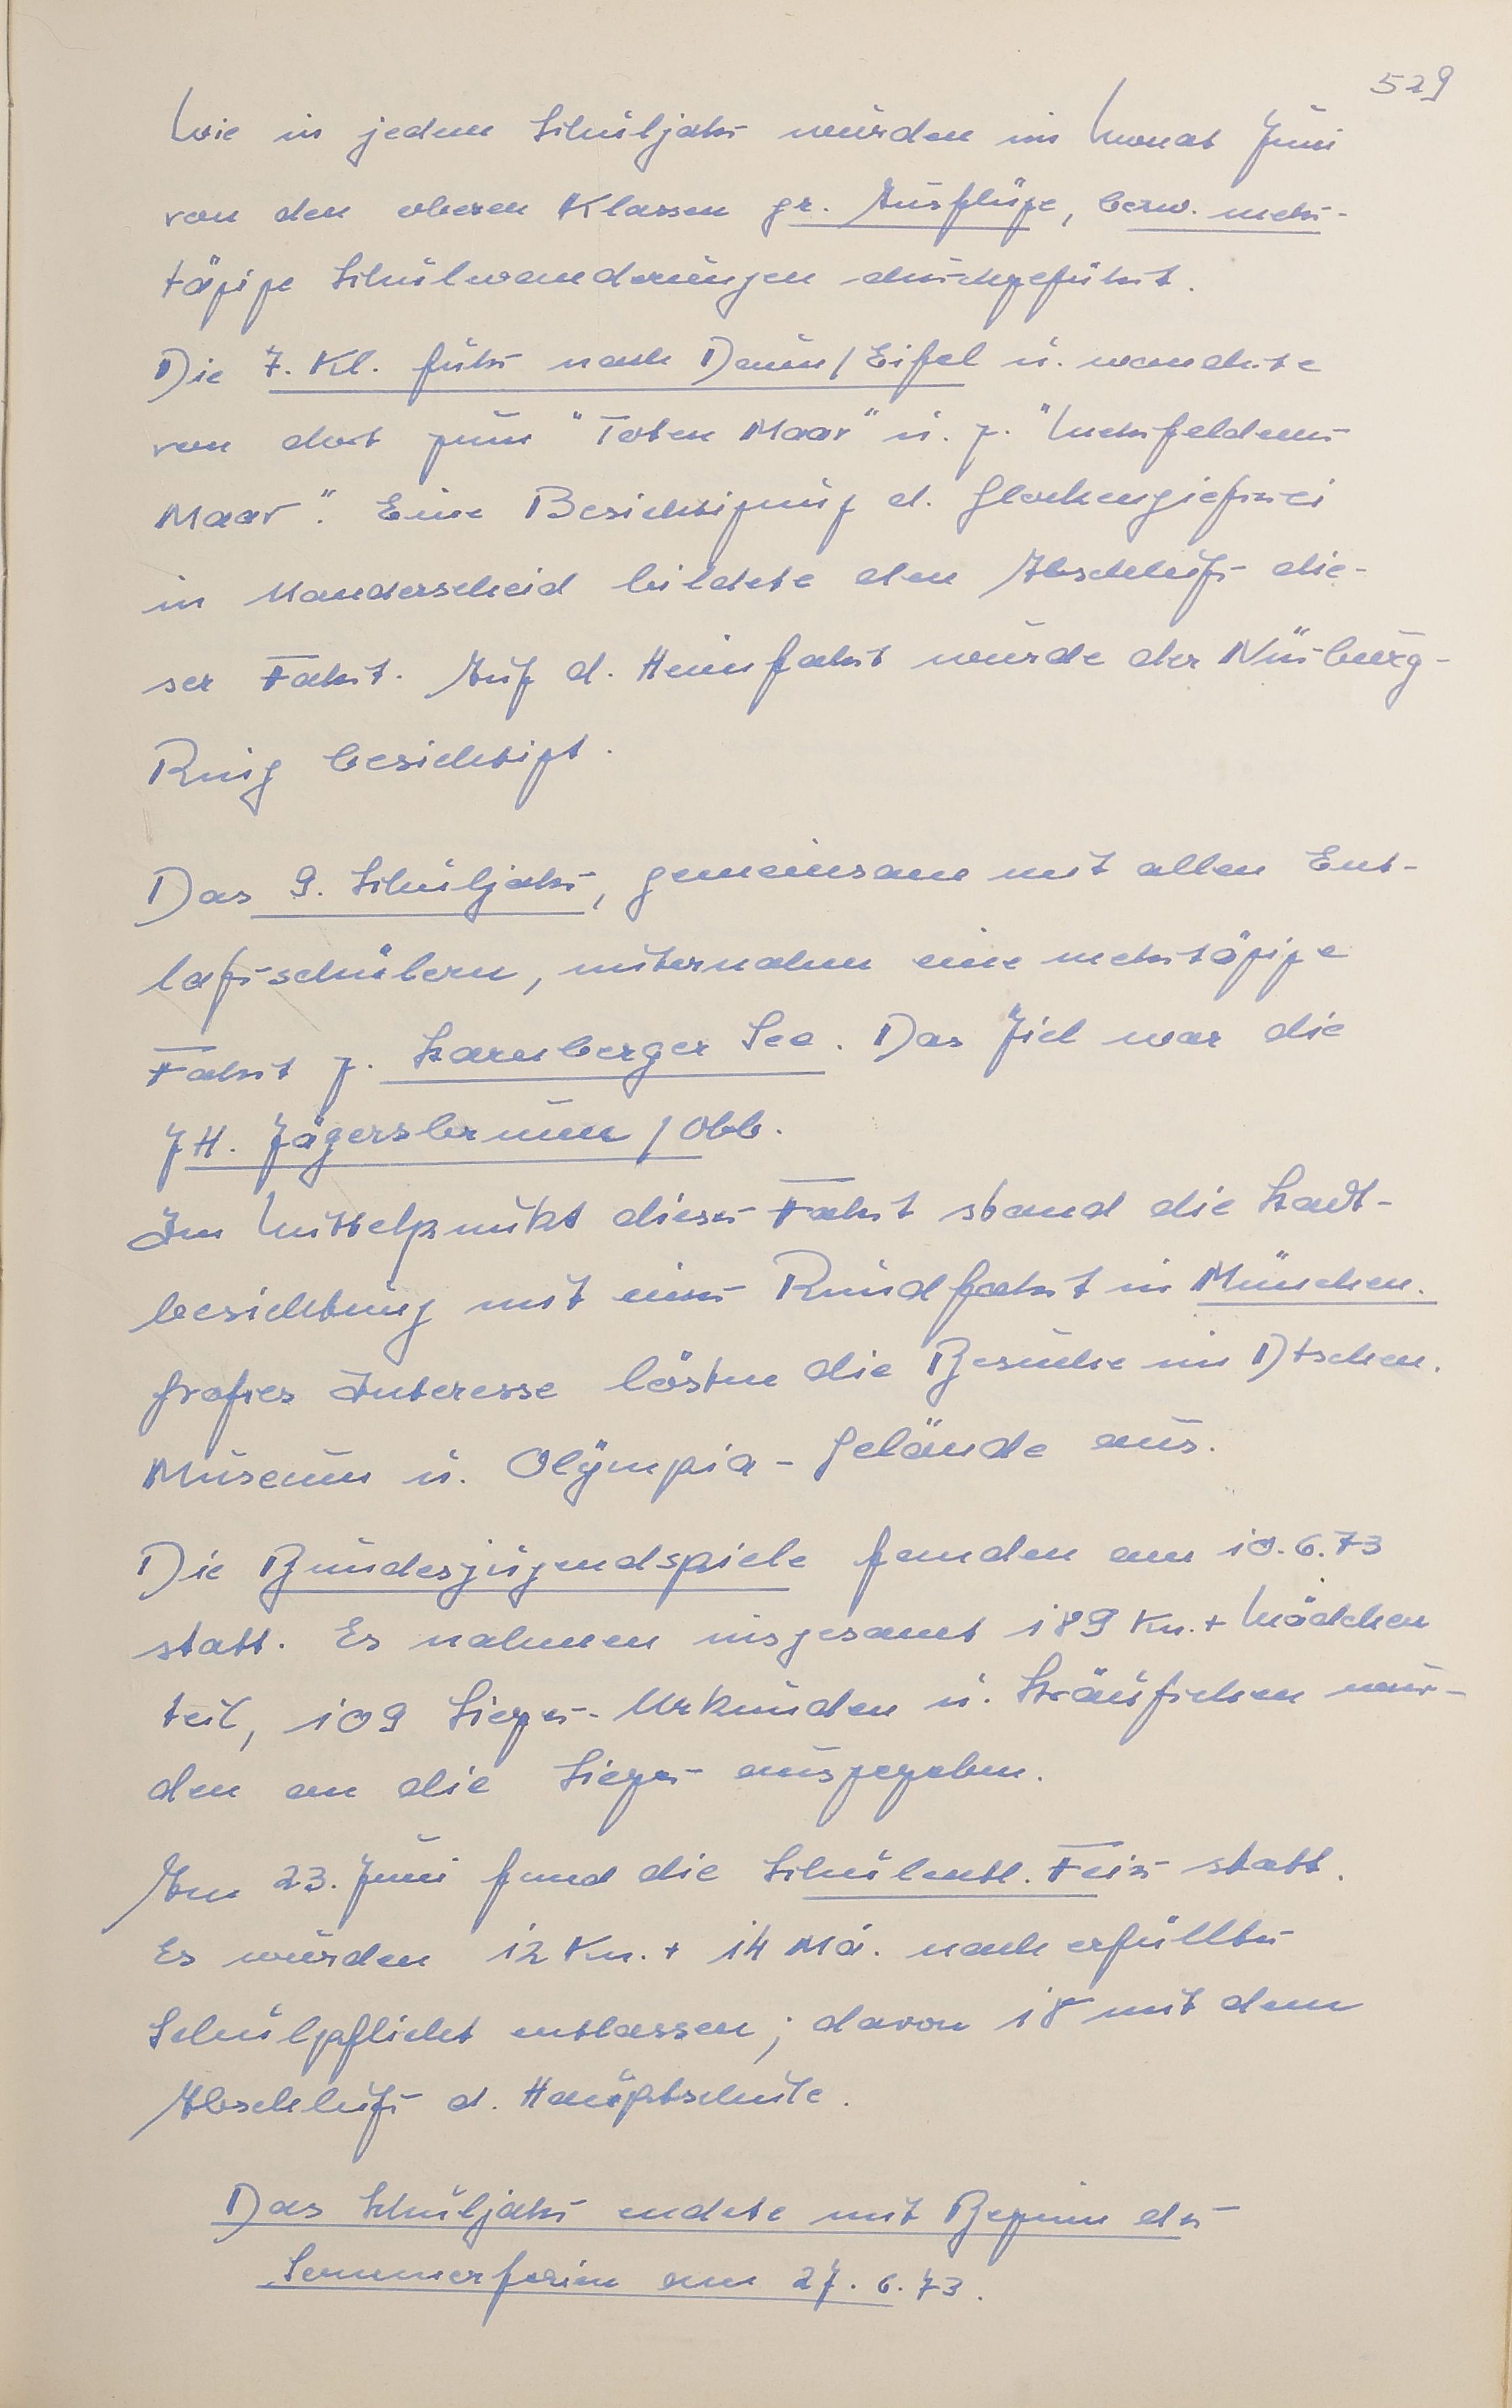 529
Wie in jedem Schuljahr wurden im Monat Juni
von den oberen Klassen gr. Ausflüge, bezw. mehr-
tägige Schulwanderungen durchgeführt.
Die 7. Kl. fuhr nach Daun/Eifel u. wanderte
von dort zum "Toten Maar" u. z. "Mehrfeldener
Maar". Eine Besichtigung d. Glockengießerei
in Manderscheid bildete den Abschluß die-
ser Fahrt. Auf d. Heimfahrt wurde der Nürburg-
Ring besichtigt.
Das 9. Schuljahr, gemeinsam mit allen Ent-
laßschülern, unternahm eine mehrtägige
Fahrt z. Starnberger See. Das Ziel war die
JH. Jägersbrunn/Obb.
Im Mittelpunkt dieser Fahrt stand die Stadt-
besichtung mit einer Rundfahrt in München.
Großes Interesse lösten die Besuche im Dtschen.
Museum u. Olympia-Gelände aus.
Die Bundesjugendspiele fanden am 10.6.73
statt. Es nahmen insgesamt 189 Kn. + Mädchen
teil, 109 Sieger-Urkunden u. Sträußchen wur-
den an die Sieger ausgegeben.
Am 23. Juni fand die Schulentl. Feier statt.
Es wurden 12 Kn. + 14 Mä. nach erfüllter
Schulpflicht entlassen; davon 18 mit dem
Abschluß d. Hauptschule.
Das Schuljahr endete mit Beginn der
Sommerferien am 27.6.73.